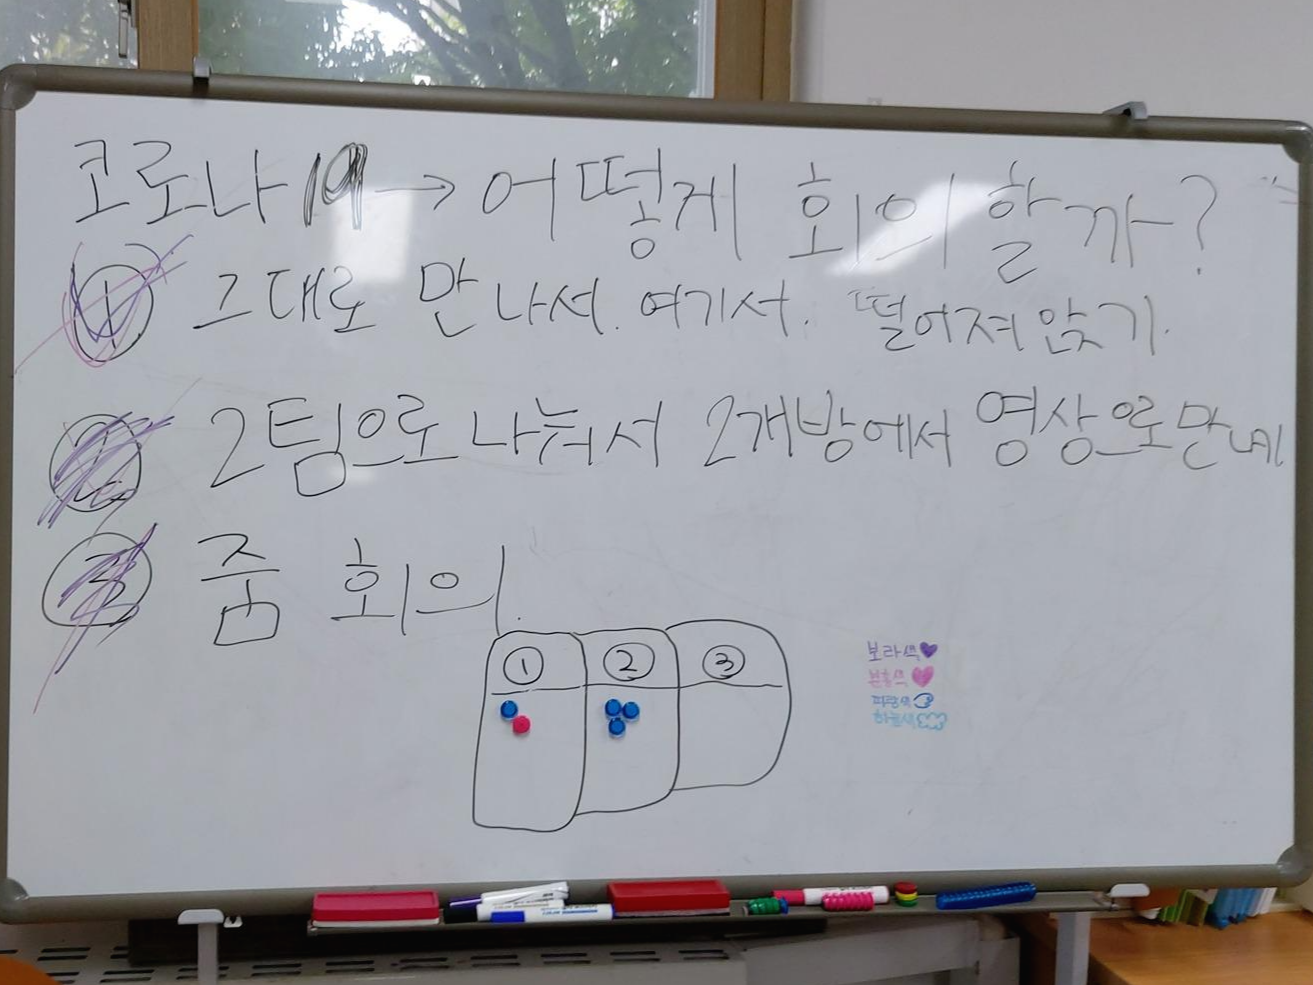 코로나19 → 어떻게 회의할까?
① 그대로 만나서. 여기서. 떨어져 앉기.
② 2팀으로 나눠서 2개방에서 영상으로 만나
③ 줌 회의.
① ② ③
보라색
분홍색
파란색
하늘색